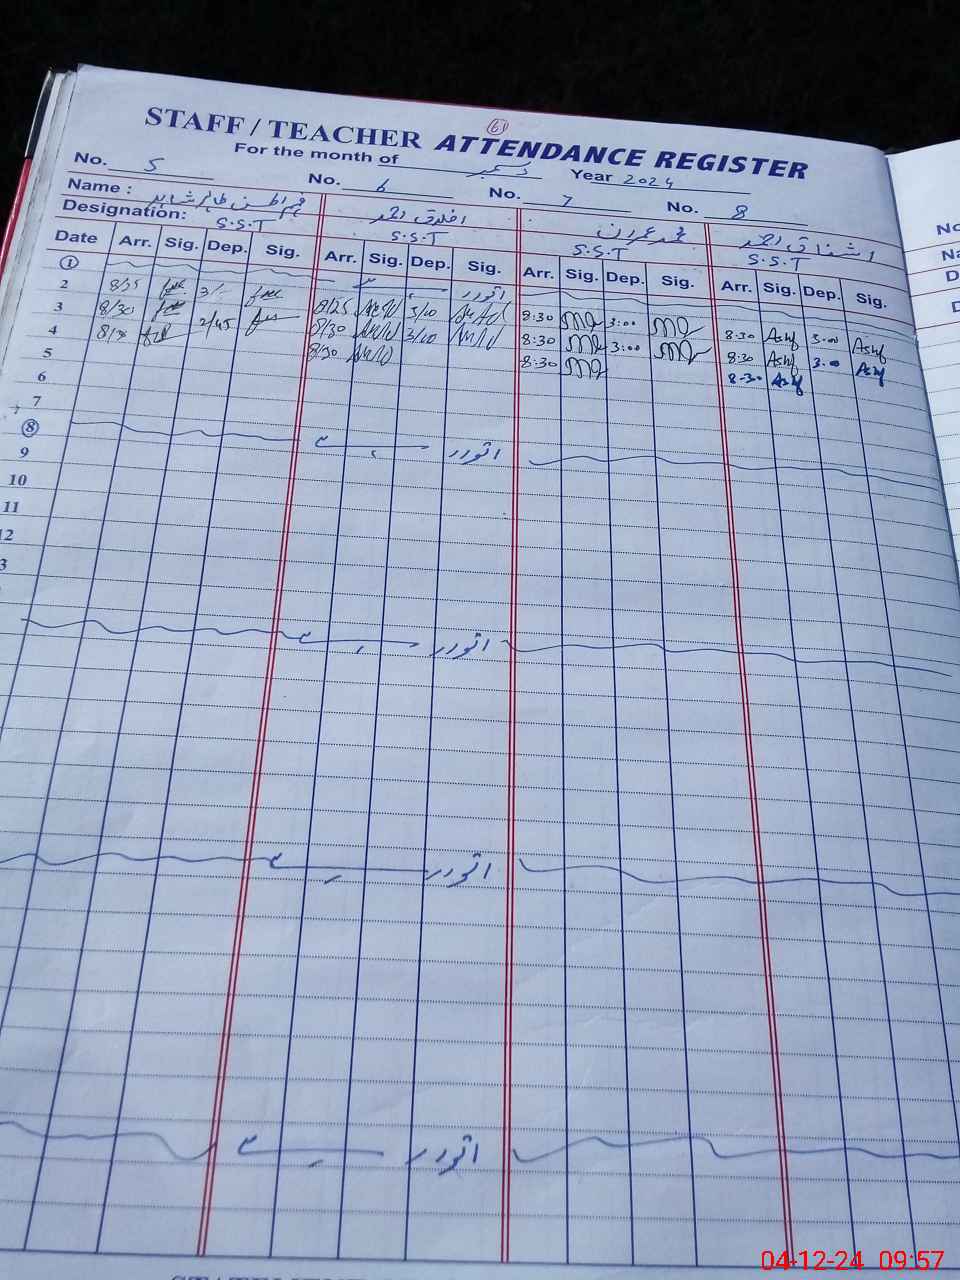 61
STAFF / TEACHER ATTENDANCE REGISTER
For the month of دسمبر Year 2024
No. 5 No. 6 No. 7 No. 8
Name : اخلاق احمد محمد عمران اشفاق احمد
Designation: S.S.T S.S.T S.S.T S.S.T
Date Arr. Sig. Dep. Sig. Arr. Sig. Dep. Sig. Arr. Sig. Dep. Sig. Arr. Sig. Dep. Sig.
1 اتوار
2 8/25 3/- 8/25 3/00 8:30 3:00 8:30 Ashf 3:00 Ashf
3 8/30 2/45 8/30 3/00 8:30 3:00 8:30 Ashf 3:00 Ashf
4 8/30 8/30 8:30 8:30 Ashf
5
6
7
8 اتوار
9
10
11
12
3
اتوار
اتوار
اتوار
No
Na
D
04-12-24 09:57